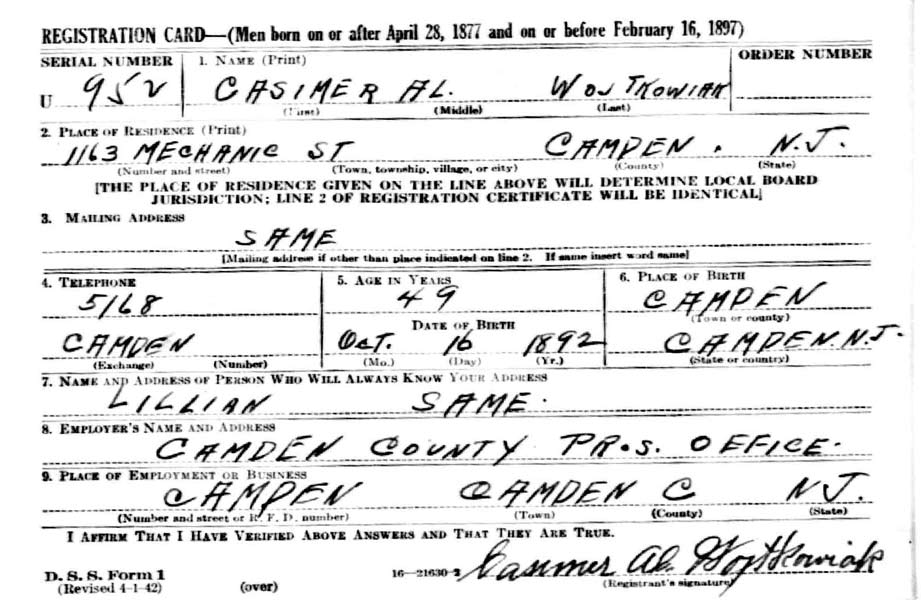 REGISTRATION CARD—(Men born on or after April 28, 1877 and on or before February 16, 1897)
SERIAL NUMBER 1. NAME (Print) ORDER NUMBER
U 952 CASIMER AL. WOJTKOWIAK
(First) (Middle) (Last)
2. PLACE OF RESIDENCE (Print)
1163 MECHANIC ST CAMDEN . N.J.
(Number and street) (Town, township, village, or city) (County) (State)
[THE PLACE OF RESIDENCE GIVEN ON THE LINE ABOVE WILL DETERMINE LOCAL BOARD
JURISDICTION; LINE 2 OF REGISTRATION CERTIFICATE WILL BE IDENTICAL]
3. MAILING ADDRESS
SAME
[Mailing address if other than place indicated on line 2. If same insert word same]
4. TELEPHONE 5. AGE IN YEARS 6. PLACE OF BIRTH
5168 49 CAMDEN
DATE OF BIRTH (Town or county)
CAMDEN Oct. 16 1892 CAMDEN N.J.
(Exchange) (Number) (Mo.) (Day) (Yr.) (State or country)
7. NAME AND ADDRESS OF PERSON WHO WILL ALWAYS KNOW YOUR ADDRESS
LILLIAN SAME.
8. EMPLOYER'S NAME AND ADDRESS
CAMDEN COUNTY PROS. OFFICE.
9. PLACE OF EMPLOYMENT OR BUSINESS
CAMDEN CAMDEN C NJ.
(Number and street or R. F. D. number) (Town) (County) (State)
I AFFIRM THAT I HAVE VERIFIED ABOVE ANSWERS AND THAT THEY ARE TRUE.
D. S. S. Form 1 16—21630-2 Casimer Al. Wojtkowiak
(Revised 4-1-42) (over) (Registrant's signature)